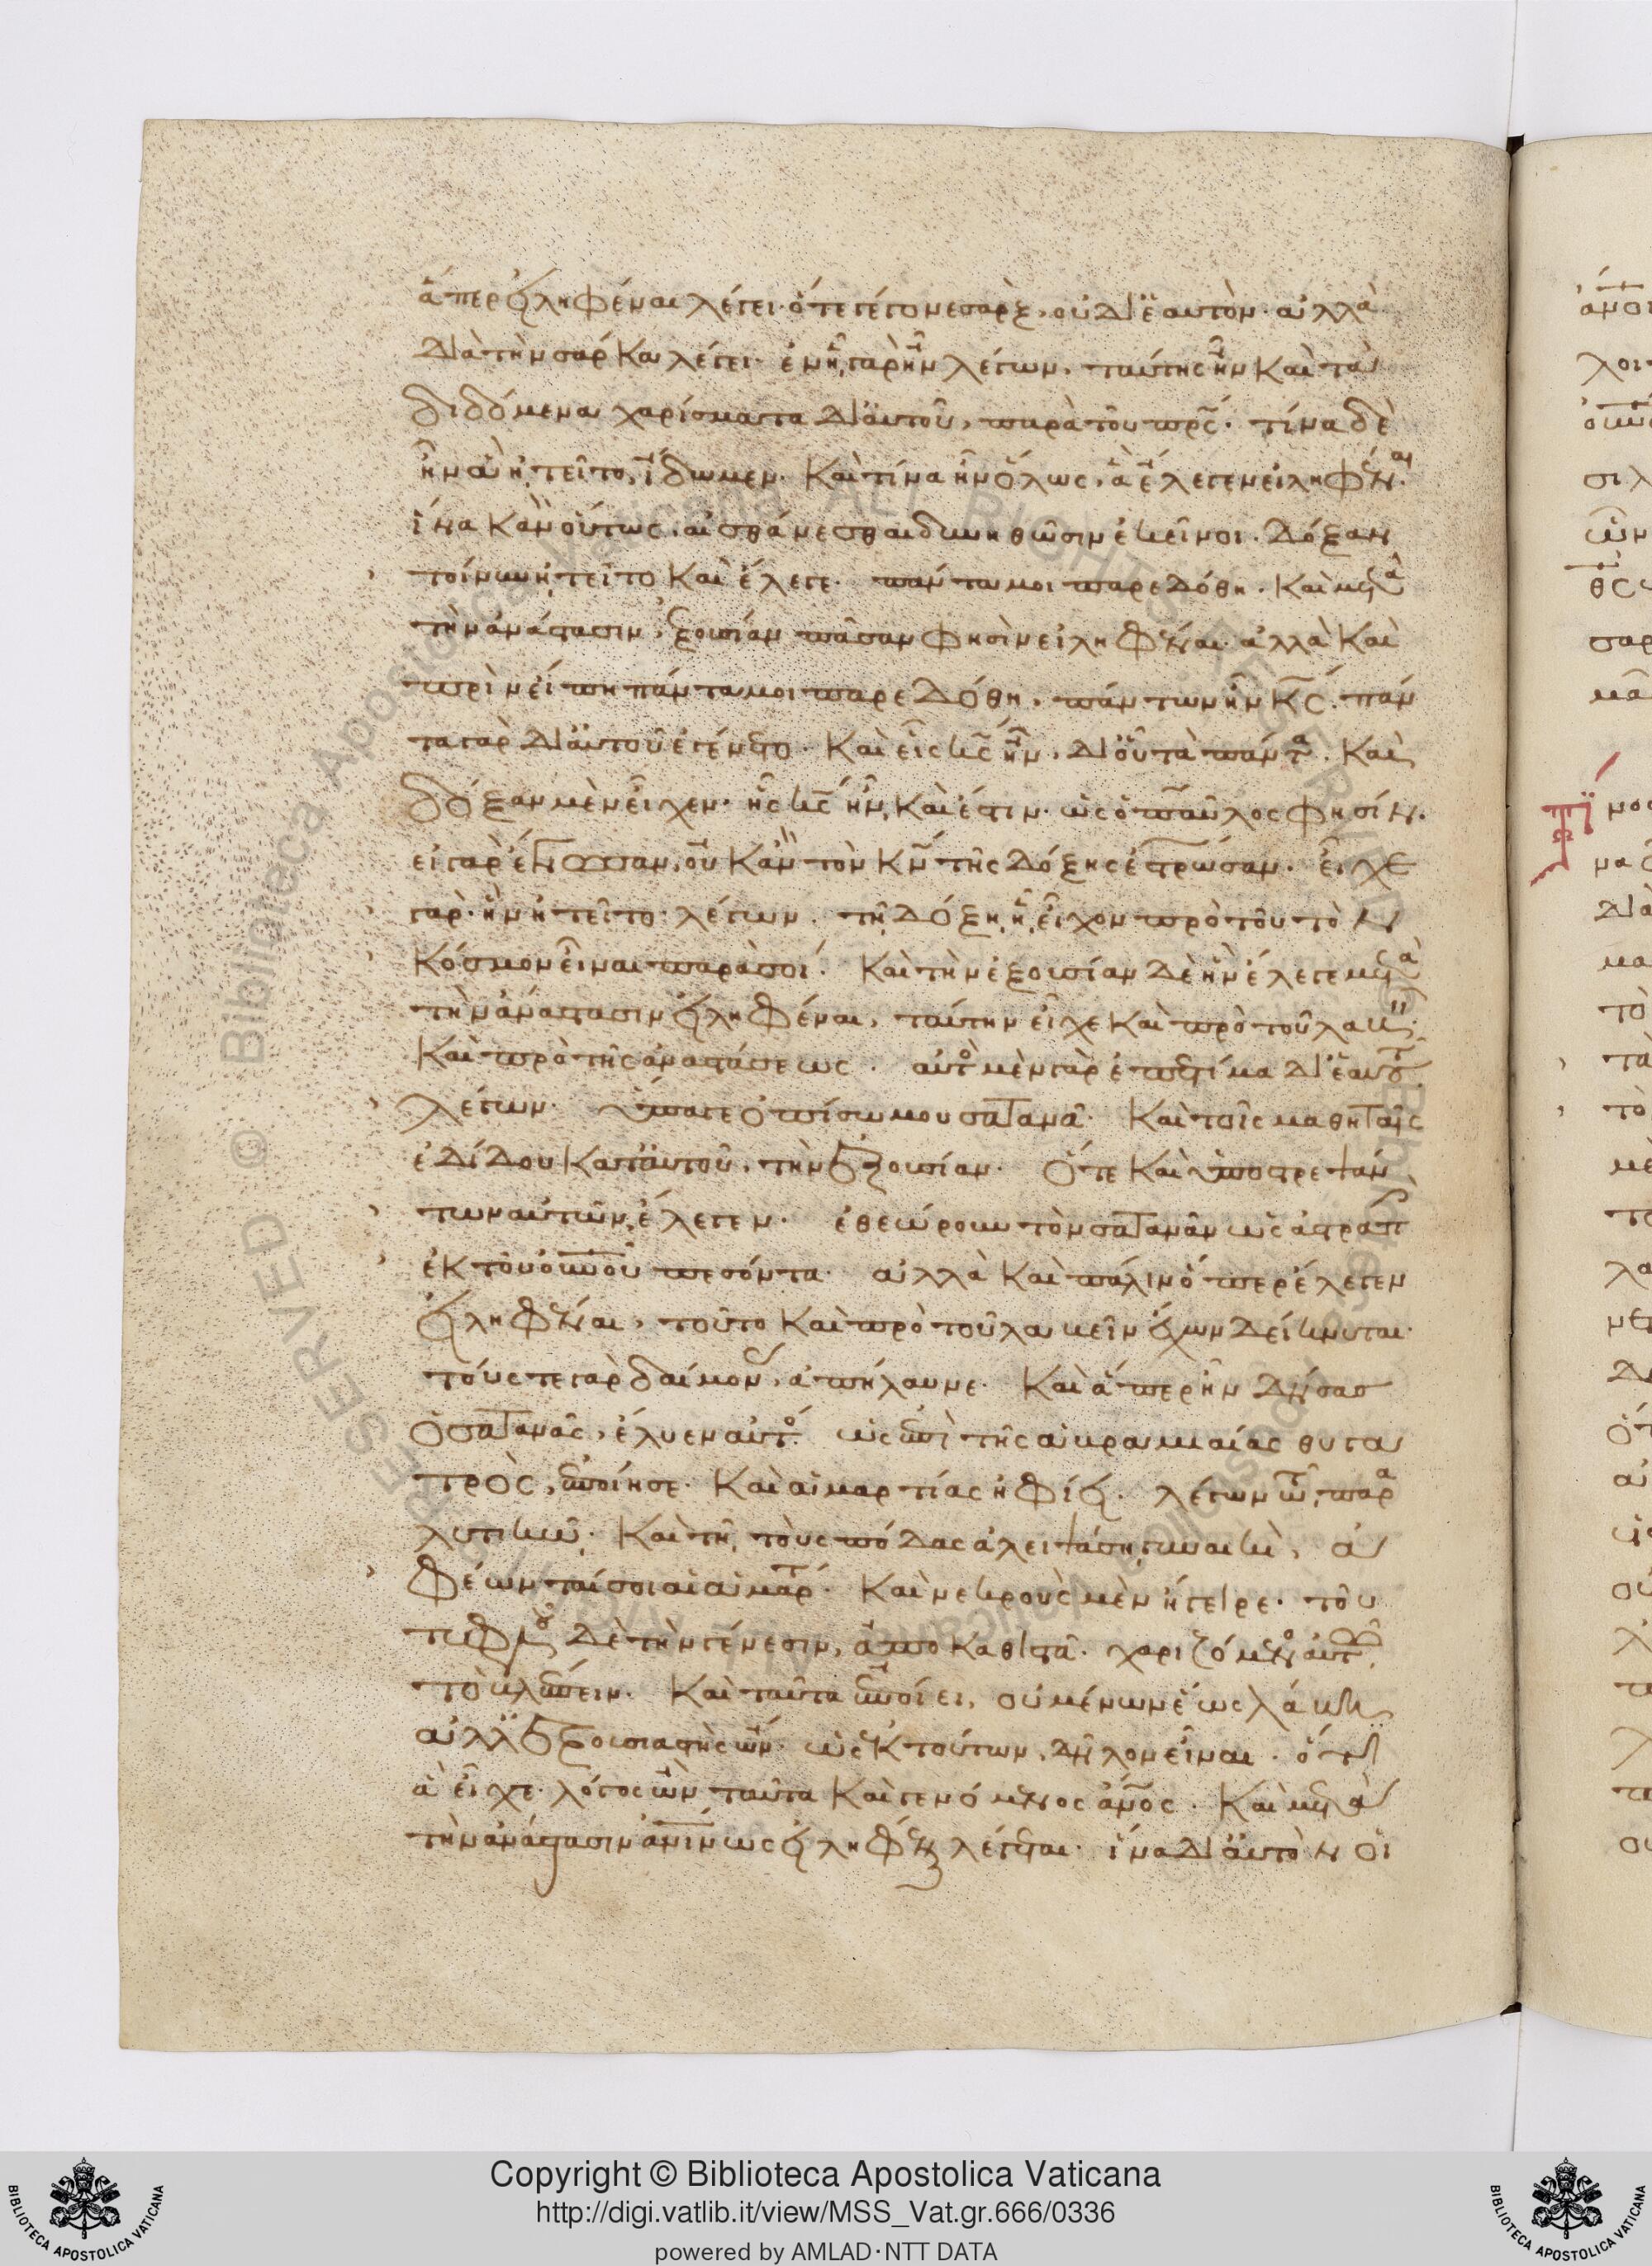 ἅπερ εἰληφέναι λέγει· ὅτε γέγονε σὰρξ, οὐ δι' ἑαυτὸν· ἀλλὰ
διὰ τὴν σάρκα λέγει· ἐν ᾗ γὰρ ἦν λέγων, ταύτης ἦν καὶ τὰ
διδόμενα χαρίσματα δι' αὐτοῦ, παρὰ τοῦ πρς· τίνα δὲ
ἦν ἃ ᾐτεῖτο, ἴδωμεν· καὶ τίνα ἦν ὅλως, ἃ ἔλεγεν εἰληφέναι·
ἵνα κἂν οὕτως, αἰσθάνεσθαι δυνηθῶσιν ἐκεῖνοι. δόξαν
τοίνυν ᾐτεῖτο καὶ ἔλεγε· πάντα μοι παρεδόθη. καὶ μετὰ
τὴν ἀνάστασιν, ἐξουσίαν πᾶσαν φησὶν εἰληφέναι· ἀλλὰ καὶ
πρὶν εἴπῃ πάντα μοι παρεδόθη, πάντων ἦν κς. πάν
τα γὰρ δι' αὐτοῦ ἐγένετο. καὶ εἷς κς ἦν, δι' οὗ τὰ πάντα. καὶ
δόξαν μὲν εἶχεν· ἧς κς ἦν, καὶ ἔστιν· ὡς ὁ παῦλος φησίν.
εἰ γὰρ ἔγνωσαν, οὐκ ἂν τὸν κν τῆς δόξης ἐσταύρωσαν. εἶχε
γὰρ· ἣν ᾐτεῖτο λέγων. τῇ δόξῃ, ᾗ εἶχον πρὸ τοῦ τὸν
κόσμον εἶναι παρὰ σοί. καὶ τὴν ἐξουσίαν δὲ ἣν ἔλεγε μετὰ
τὴν ἀνάστασιν εἰληφέναι, ταύτην εἶχε καὶ πρὸ τοῦ λαβεῖν
καὶ πρὸ τῆς ἀναστάσεως. αὐτὸς μὲν γὰρ ἐπετίμα δι' ἑαυτοῦ
λέγων. ὕπαγε ὀπίσω μου σατανᾶ. καὶ τοῖς μαθηταῖς
ἐδίδου κατ' αὐτοῦ, τὴν ἐξουσίαν. ὅτε καὶ ὑποστρεψάν
των αὐτῶν, ἔλεγεν. ἐθεώρουν τὸν σατανᾶν ὡς ἀστραπὴν
ἐκ τοῦ οὐνου πεσόντα· ἀλλὰ καὶ πάλιν ὅπερ ἔλεγεν
εἰληφέναι, τοῦτο καὶ πρὸ τοῦ λαβεῖν ἔχων δείκνυται·
τούς τε γὰρ δαίμονας, ἀπήλαυνε. καὶ ἅπερ ἦν δήσας
ὁ σατανᾶς, ἔλυεν αὐτός. ὡς ἐπὶ τῆς ἀβρααμιαίας θυγα
τρὸς, ἐποίησε. καὶ ἁμαρτίας ἠφίει. λέγων τῷ παρα
λυτικῷ. καὶ τῇ τοὺς πόδας ἀλειψάσῃ γυναικὶ, ἀ
φέωνταί σοι αἱ ἁμαρτ. καὶ νεκροὺς μὲν ἤγειρε. τοῦ
τυφλοῦ δὲ τὴν γένεσιν, ἀποκαθιστᾶ. χαριζόμενος αὐτῷ
τὸ βλέπειν. καὶ ταῦτα ἐποίει, οὐ μένων ἕως λάβῃ
ἀλλ' ἐξουσιαστὴς ὤν. ὡς ἐκ τούτων, δῆλον εἶναι. ὅτι
ἃ εἶχε λόγος ὢν ταῦτα καὶ γενόμενος ἄνος. καὶ μετὰ
τὴν ἀνάστασιν ἀνίνως εἰληφέναι λέγεται· ἵνα δι' αὐτὸν οἱ
Copyright © Biblioteca Apostolica Vaticana
http://digi.vatlib.it/view/MSS_Vat.gr.666/0336
powered by AMLAD·NTT DATA